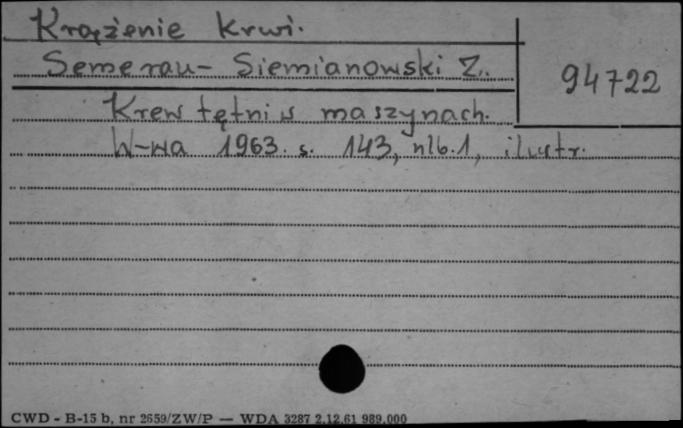 Krążenie krwi.
Semerau-Siemianowski Z.
94722
Krew tętni w maszynach.
W-wa 1963. s. 143, nlb.1, ilustr.
CWD - B-15 b, nr 2659/ZW/P — WDA 3287 2.12.61 989.000